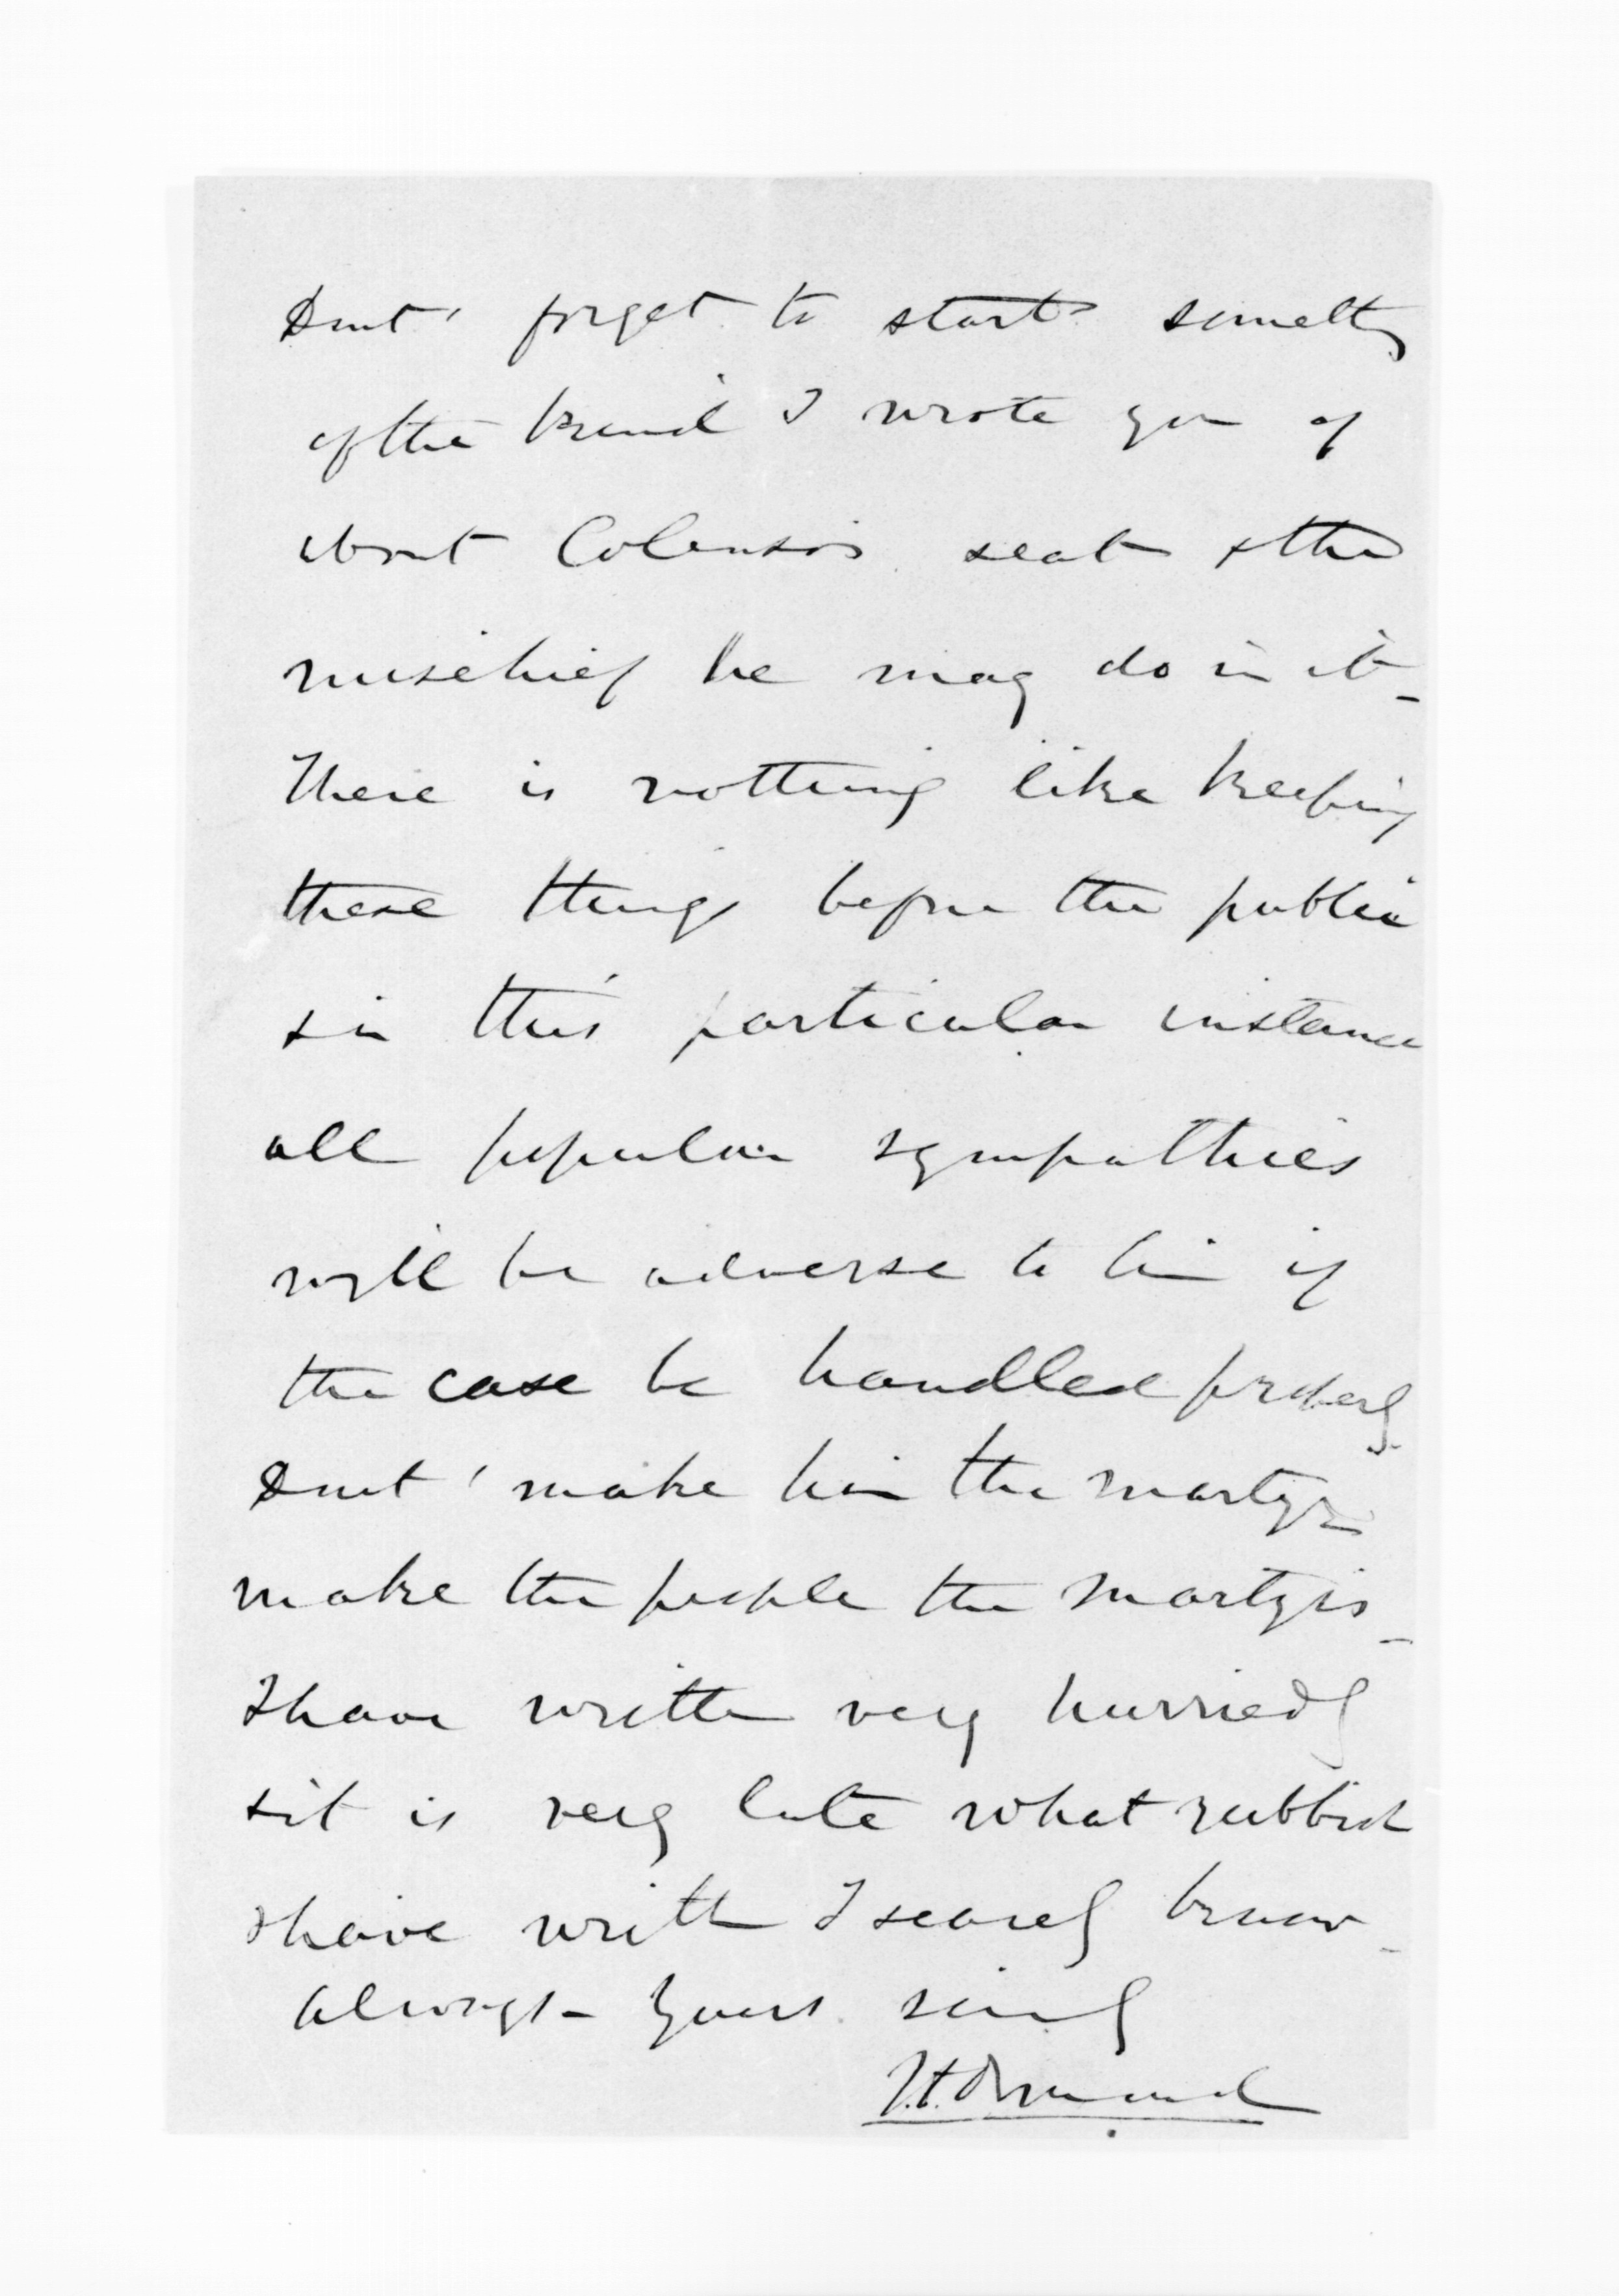 Dont' forget to start somethg
of the kind I wrote you of
about Colenso's seat & the
mischief he may do in it -
There is nothing like keeping
these things before the public
& in this particular instance
all popular sympathies
will be adverse to him if
the case be handled properly.
Dont' make him the martyr
make the people the martyrs -
I have written very hurriedly
& it is very late what rubbish
I have written I scarcely know -
Always - Yours sincly
J.D. Ormond